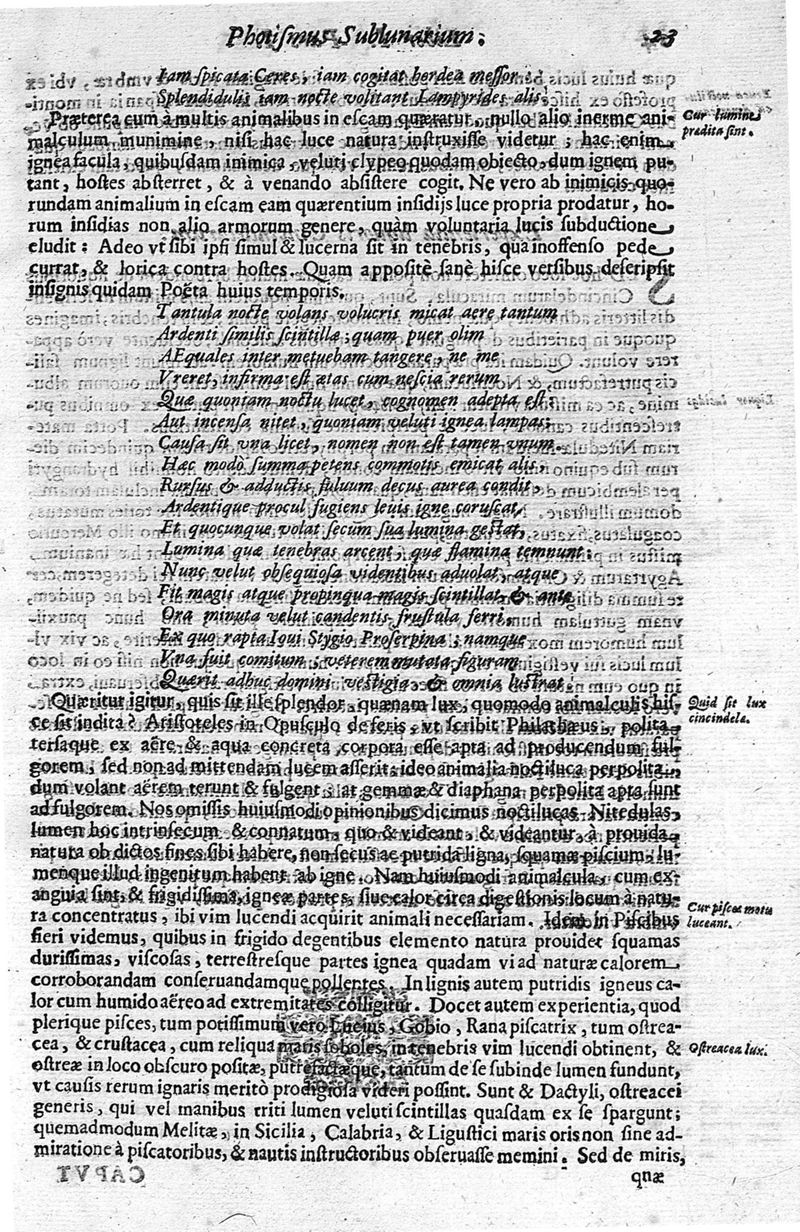 Photiſmus Sublunarium. 23
Iam ſpicata Ceres, iam cogitat hordea meſſor:
Splendiduli iam nocte volitant Lampyrides alis.
Præterea cum à multis animalibus in eſcam quæratur, nullo alio inerme ani-
malculum munimine, niſi hac luce natura inſtruxiſſe videtur; hac enim
ignea facula, quibuſdam inimica, veluti clypeo quodam obiecto, dum ignem pu-
tant, hoſtes abſterret, & à venando abſiſtere cogit. Ne vero ab inimicis quo-
rundam animalium in eſcam eam quærentium inſidijs luce propria prodatur, ho-
rum inſidias non alio armorum genere, quàm voluntaria lucis ſubductione
eludit: Adeo vt ſibi ipſi ſimul & lucerna ſit in tenebris, qua inoffenſo pede
currat, & lorica contra hoſtes. Quam appoſitè ſanè hiſce verſibus deſcripſit
inſignis quidam Poëta huius temporis.
Cur lumine
prædita ſint.
Tantula nocte volans volucris micat aere tantum
Ardenti ſimilis ſcintillæ; quam puer olim
AEquales inter metuebam tangere, ne me
Vreret, infirma eſt ætas cum neſcia rerum
Quæ quoniam noctu lucet, cognomen adepta eſt;
Aut incenſa nitet, quoniam veluti ignea lampas;
Cauſa ſit vna licet, nomen non eſt tamen vnum.
Hæc modò ſumma petens commotis emicat alis,
Rurſus & adductis fuluum decus aurea condit,
Ardentique procul fugiens leuis igne coruſcat,
Et quocunque volat ſecum ſua lumina geſtat,
Lumina quæ tenebras arcent, quæ flamina temnunt:
Nunc velut obſequioſa videntibus aduolat, atque
Fit magis atque propinqua magis ſcintillat, & ante
Ora minuta velut candentis fruſtula ferri.
Ex quo rapta Ioui Stygio Proſerpina; namque
Vna fuit comitum; veterem mutata figuram
Quærit adhuc domini veſtigia, & omnia luſtrat.
Quæritur igitur, quis ſit ille ſplendor, quænam lux, quomodo animalculis hiſ-
ce ſit indita? Ariſtoteles in Opuſculo de feris, vt ſcribit Philathæus, polita,
terſaque ex aëre & aqua concreta corpora eſſe apta ad producendum ful-
gorem, ſed non ad mittendam lucem aſſerit; ideo animalia noctiluca perpolita,
dum volant aërem terunt & fulgent; at gemmæ & diaphana perpolita apta ſunt
ad fulgorem. Nos omiſſis huiuſmodi opinionibus dicimus noctilucas Nitedulas,
lumen hoc intrinſecum & connatum, quo & videant, & videantur, à prouida
natura ob dictos fines ſibi habere, non ſecus ac putrida ligna, ſquamæ piſcium, lu-
menque illud ingenitum habent ab igne. Nam huiuſmodi animalcula, cum ex-
anguia ſint, & frigidiſſima, igneæ partes, ſiue calor circa digeſtionis locum à natu-
ra concentratus, ibi vim lucendi acquirit animali neceſſariam. Idem in Piſcibus
fieri videmus, quibus in frigido degentibus elemento natura prouidet ſquamas
duriſſimas, viſcoſas, terreſtreſque partes ignea quadam vi ad naturæ calorem
corroborandam conſeruandamque pollentes. In lignis autem putridis igneus ca-
lor cum humido aëreo ad extremitates colligitur. Docet autem experientia, quod
plerique piſces, tum potiſſimum vero Lucius, Gobio, Rana piſcatrix, tum oſtrea-
cea, & cruſtacea, cum reliqua maris ſoboles, in tenebris vim lucendi obtinent, &
oſtreæ in loco obſcuro poſitæ, putrefactæque, tantum de ſe ſubinde lumen fundunt,
vt cauſis rerum ignaris meritò prodigioſa videri poſſint. Sunt & Dactyli, oſtreacei
generis, qui vel manibus triti lumen veluti ſcintillas quaſdam ex ſe ſpargunt;
quemadmodum Melitæ, in Sicilia, Calabria, & Liguſtici maris oris non ſine ad-
miratione à piſcatoribus, & nautis inſtructoribus obſeruaſſe memini. Sed de miris,
quæ
Quid ſit lux
cincindelæ.
Cur piſces motu
luceant.
Oſtreacea lux.